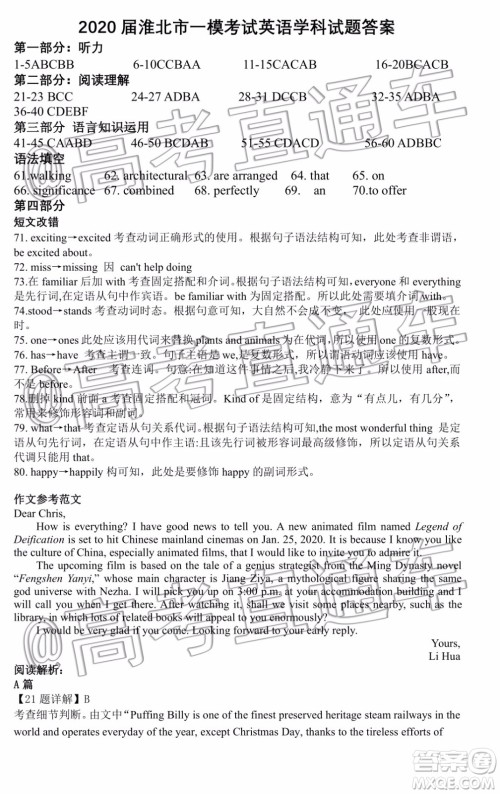 2020 届淮北市一模考试英语学科试题答案
第一部分：听力
1-5ABCBB 6-10CCBAA 11-15CACAB 16-20BCACB
第二部分：阅读理解
21-23 BCC 24-27 ADBA 28-31 DCCB 32-35 ADBA
36-40 CDEBF
第三部分 语言知识运用
41-45 CAABD 46-50 BCDAB 51-55 CDACD 56-60 ADBBC
语法填空
61.walking 62. architectural 63. are arranged 64. that 65. on
66. significance 67. combined 68. perfectly 69. an 70.to offer
第四部分
短文改错
71. exciting→excited 考查动词正确形式的使用。根据句子语法结构可知，此处考查非谓语,
be excited about。
72. miss→missing 因 can't help doing
73.在 familiar 后加 with 考查固定搭配和介词。根据句子语法结构可知，everyone 和 everything
是先行词,在定语从句中作宾语。be familiar with 为固定搭配，所以应该使用介词 with。
74.stood→stands 考查动词时态。根据句意可知，大自然不会成不变， 此处应使用一般现在
时。
75. one→ones 此处应该用代词来替换 plants and animals 为在句中，所以使用 one 的复数形式。
76. has→have 考查主谓一致。句子主语是 we,是复数形式，所以谓语动词应该使用 have。
77. Before→After 考查连词。句意:在知道这件事情之后,我冷静下来了。所以使用 after,而
不是 before。
78.删掉 kind 前面 a 考查固定搭配和冠词。Kind of 是固定结构，意为“有点儿，有几分”，
常用来修饰形容词和副词。
79. what→that 考查定语从句关系代词。根据句子语法结构可知,the most wonderful thing 是
定语从句先行词，在定语从句中作主语:且该先行词被形容词最高级修饰，所以定语从句关系
代词只能用 that。
80. happy→happily 构可知，此处是要修饰 happy 的副词形式。
作文参考范文
Dear Chris,
How is everything? I have good news to tell you. A new animated film named Legend of
Deification is set to hit Chinese mainland cinemas on Jan. 25, 2020. It is because I know you like
the culture of China, especially animated films, that I would like to invite you to admire it.
The upcoming film is based on the tale of gods unique strategist from the Ming Dynasty novel
“Fengshen Yanyi,” whose main character is Jiang Ziya, a mythological figure sharing the same
god universe with Nezha. I will pick you up on 3:00 p.m. at your accommodation building and
I will call you before arriving. After watching it, shall we share some feelings, such as in the
library, in which lots of related books will enable us to understand the film better?
I would be very glad if you come. I am looking forward to your early reply.
Yours,
Li Hua
阅读解析：
A 篇
【21 题详解】B
考查细节判断。由文中“Puffing Billy is one of the finest preserved heritage steam railways in the
world and operates everyday of the year, except Christmas Day, thanks to the tireless efforts of
@高考直通车